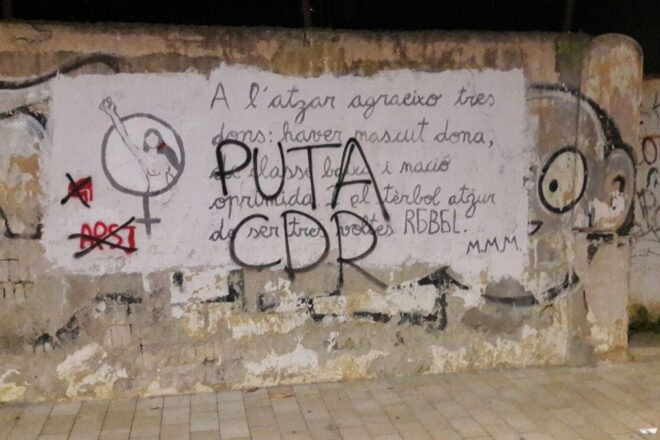 A l'atzar agraeixo tres
dons: haver nascut dona,
de classe baixa i nació
oprimida. I el tèrbol atzur
de ser tres voltes REBEL.
M.M.M.
PUTA
CDR
ARST